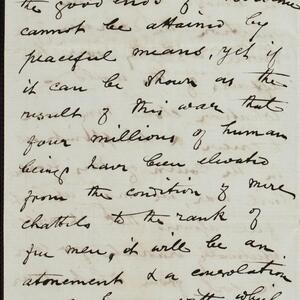 the good ends of
cannot be attained by
peaceful means, yet if
it can be shown as the
result of this war that
four millions of human
beings have been elevated
from the condition of mere
chattels to the rank of
free men, it will be an
atonement & a consolation